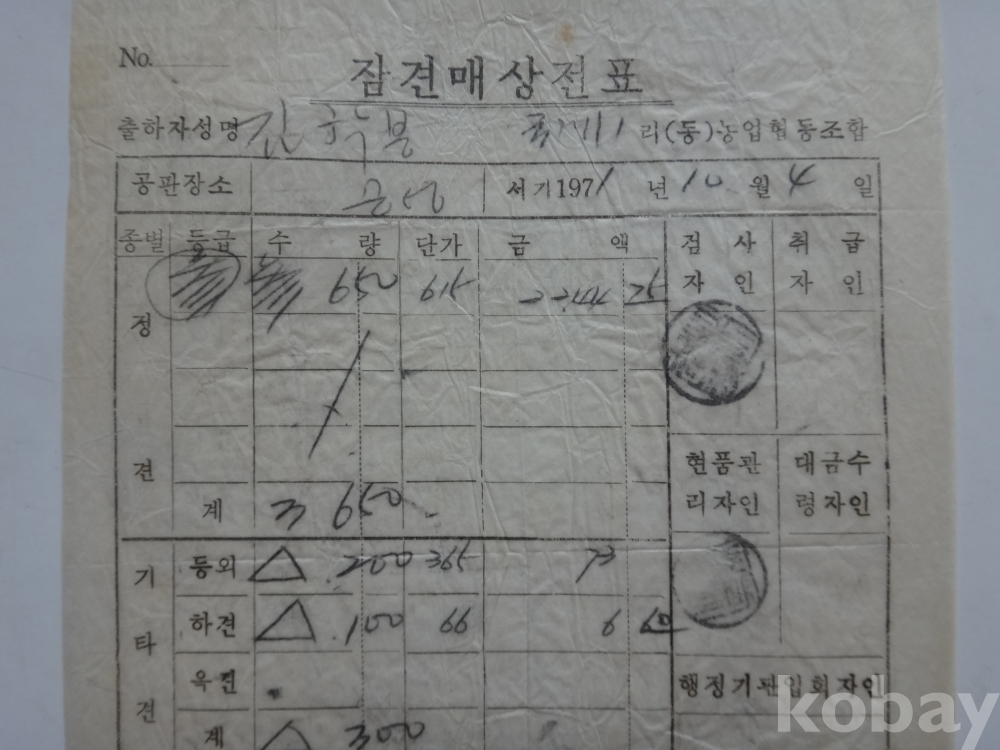 No.
잠견매상전표
출하자성명 김 리(동)농업협동조합
공판장소 서기1971년 10월 4일
종별 등급 수 량 단가 금 액 검 사 자 인 취 급 자 인
650 615 2244 75
정 견
계 3 650
현품관리자인 대금수령자인
기 타 견
등외 △ .200 365 73
하견 △ .100 66 6 60
옥견
행정기관입회자인
계 △ 300
kobay